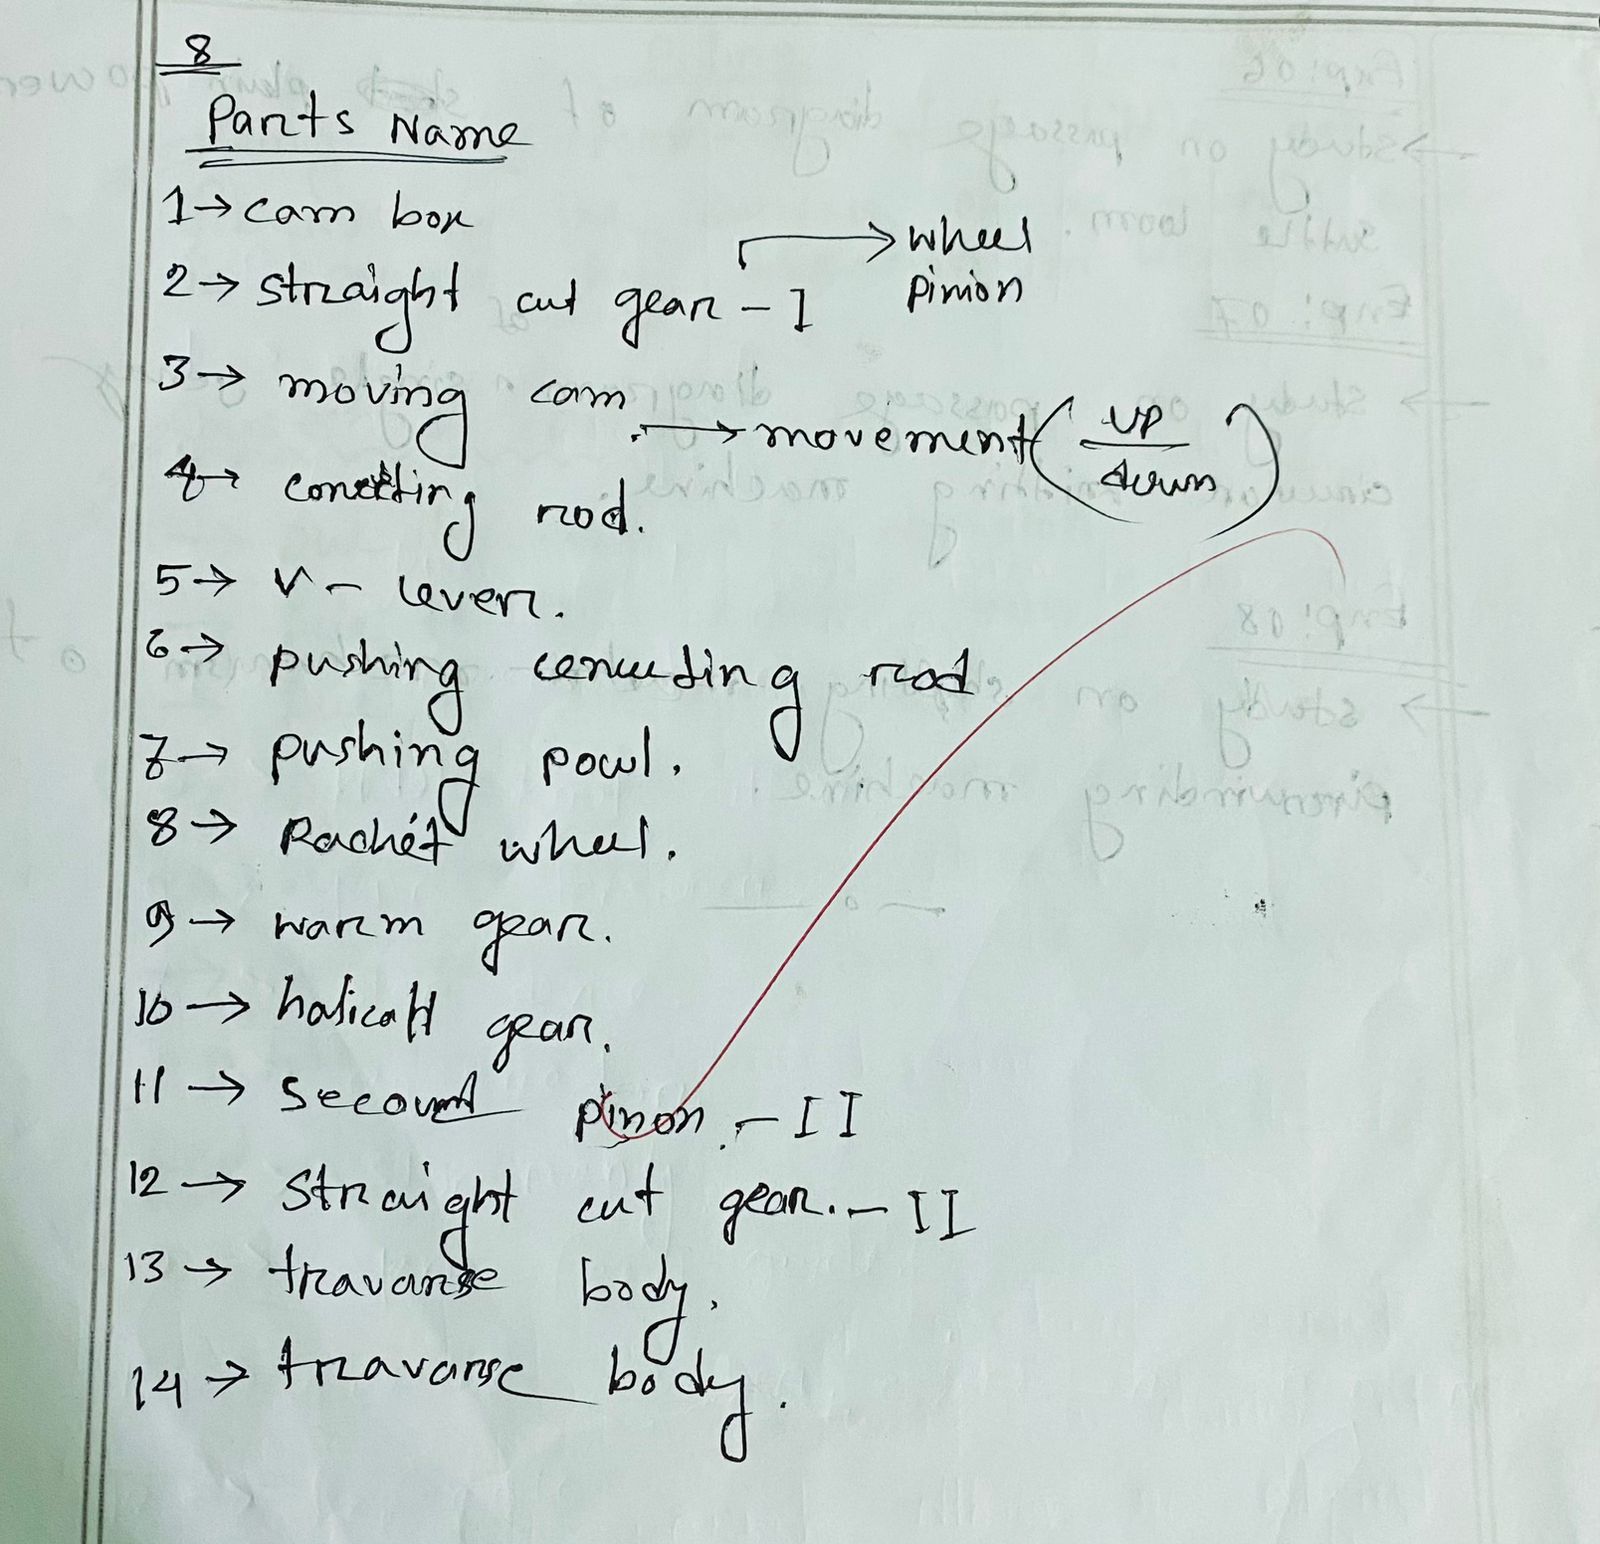 8
Parts Name
1→ cam box
2→ straight cut gear - I → wheel
pinion
3→ moving cam → movement (up/down)
4→ conecting rod.
5→ V - lever.
6→ pushing conecting rod
7→ pushing powl.
8→ Rachet wheel.
9→ warm gear.
10→ halicall gear.
11→ Second pinon. - II
12→ Straight cut gear. - II
13→ travarse body.
14→ travarse body.